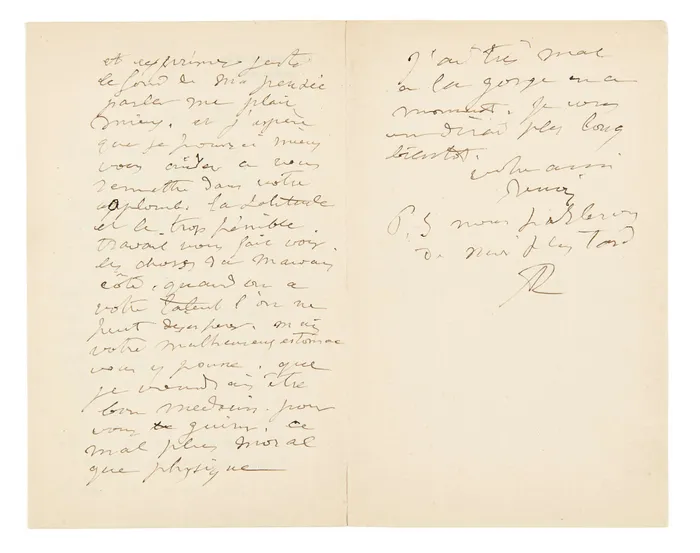 et exprimer juste
le fond de ma pensée
parler me plait
mieux. et j'espère
que je pourrai mieux
vous aider a vous
remettre dans votre
aplomb. la solitude
et le trop pénible
travail vous fait voir
les choses du mauvais
côté. quand on a
votre talent l'on ne
peut desesperer. mais
votre malheureux estomac
vous y pousse. que
je voudrais être
bon medecin. pour
vous guerir. ce
mal plus moral
que physique
J'ai très mal
a la gorge en ce
moment. Je vous
en dirai plus long
bientot.
votre ami
Renoir
P. S nous parlerons
de plus tard
AR